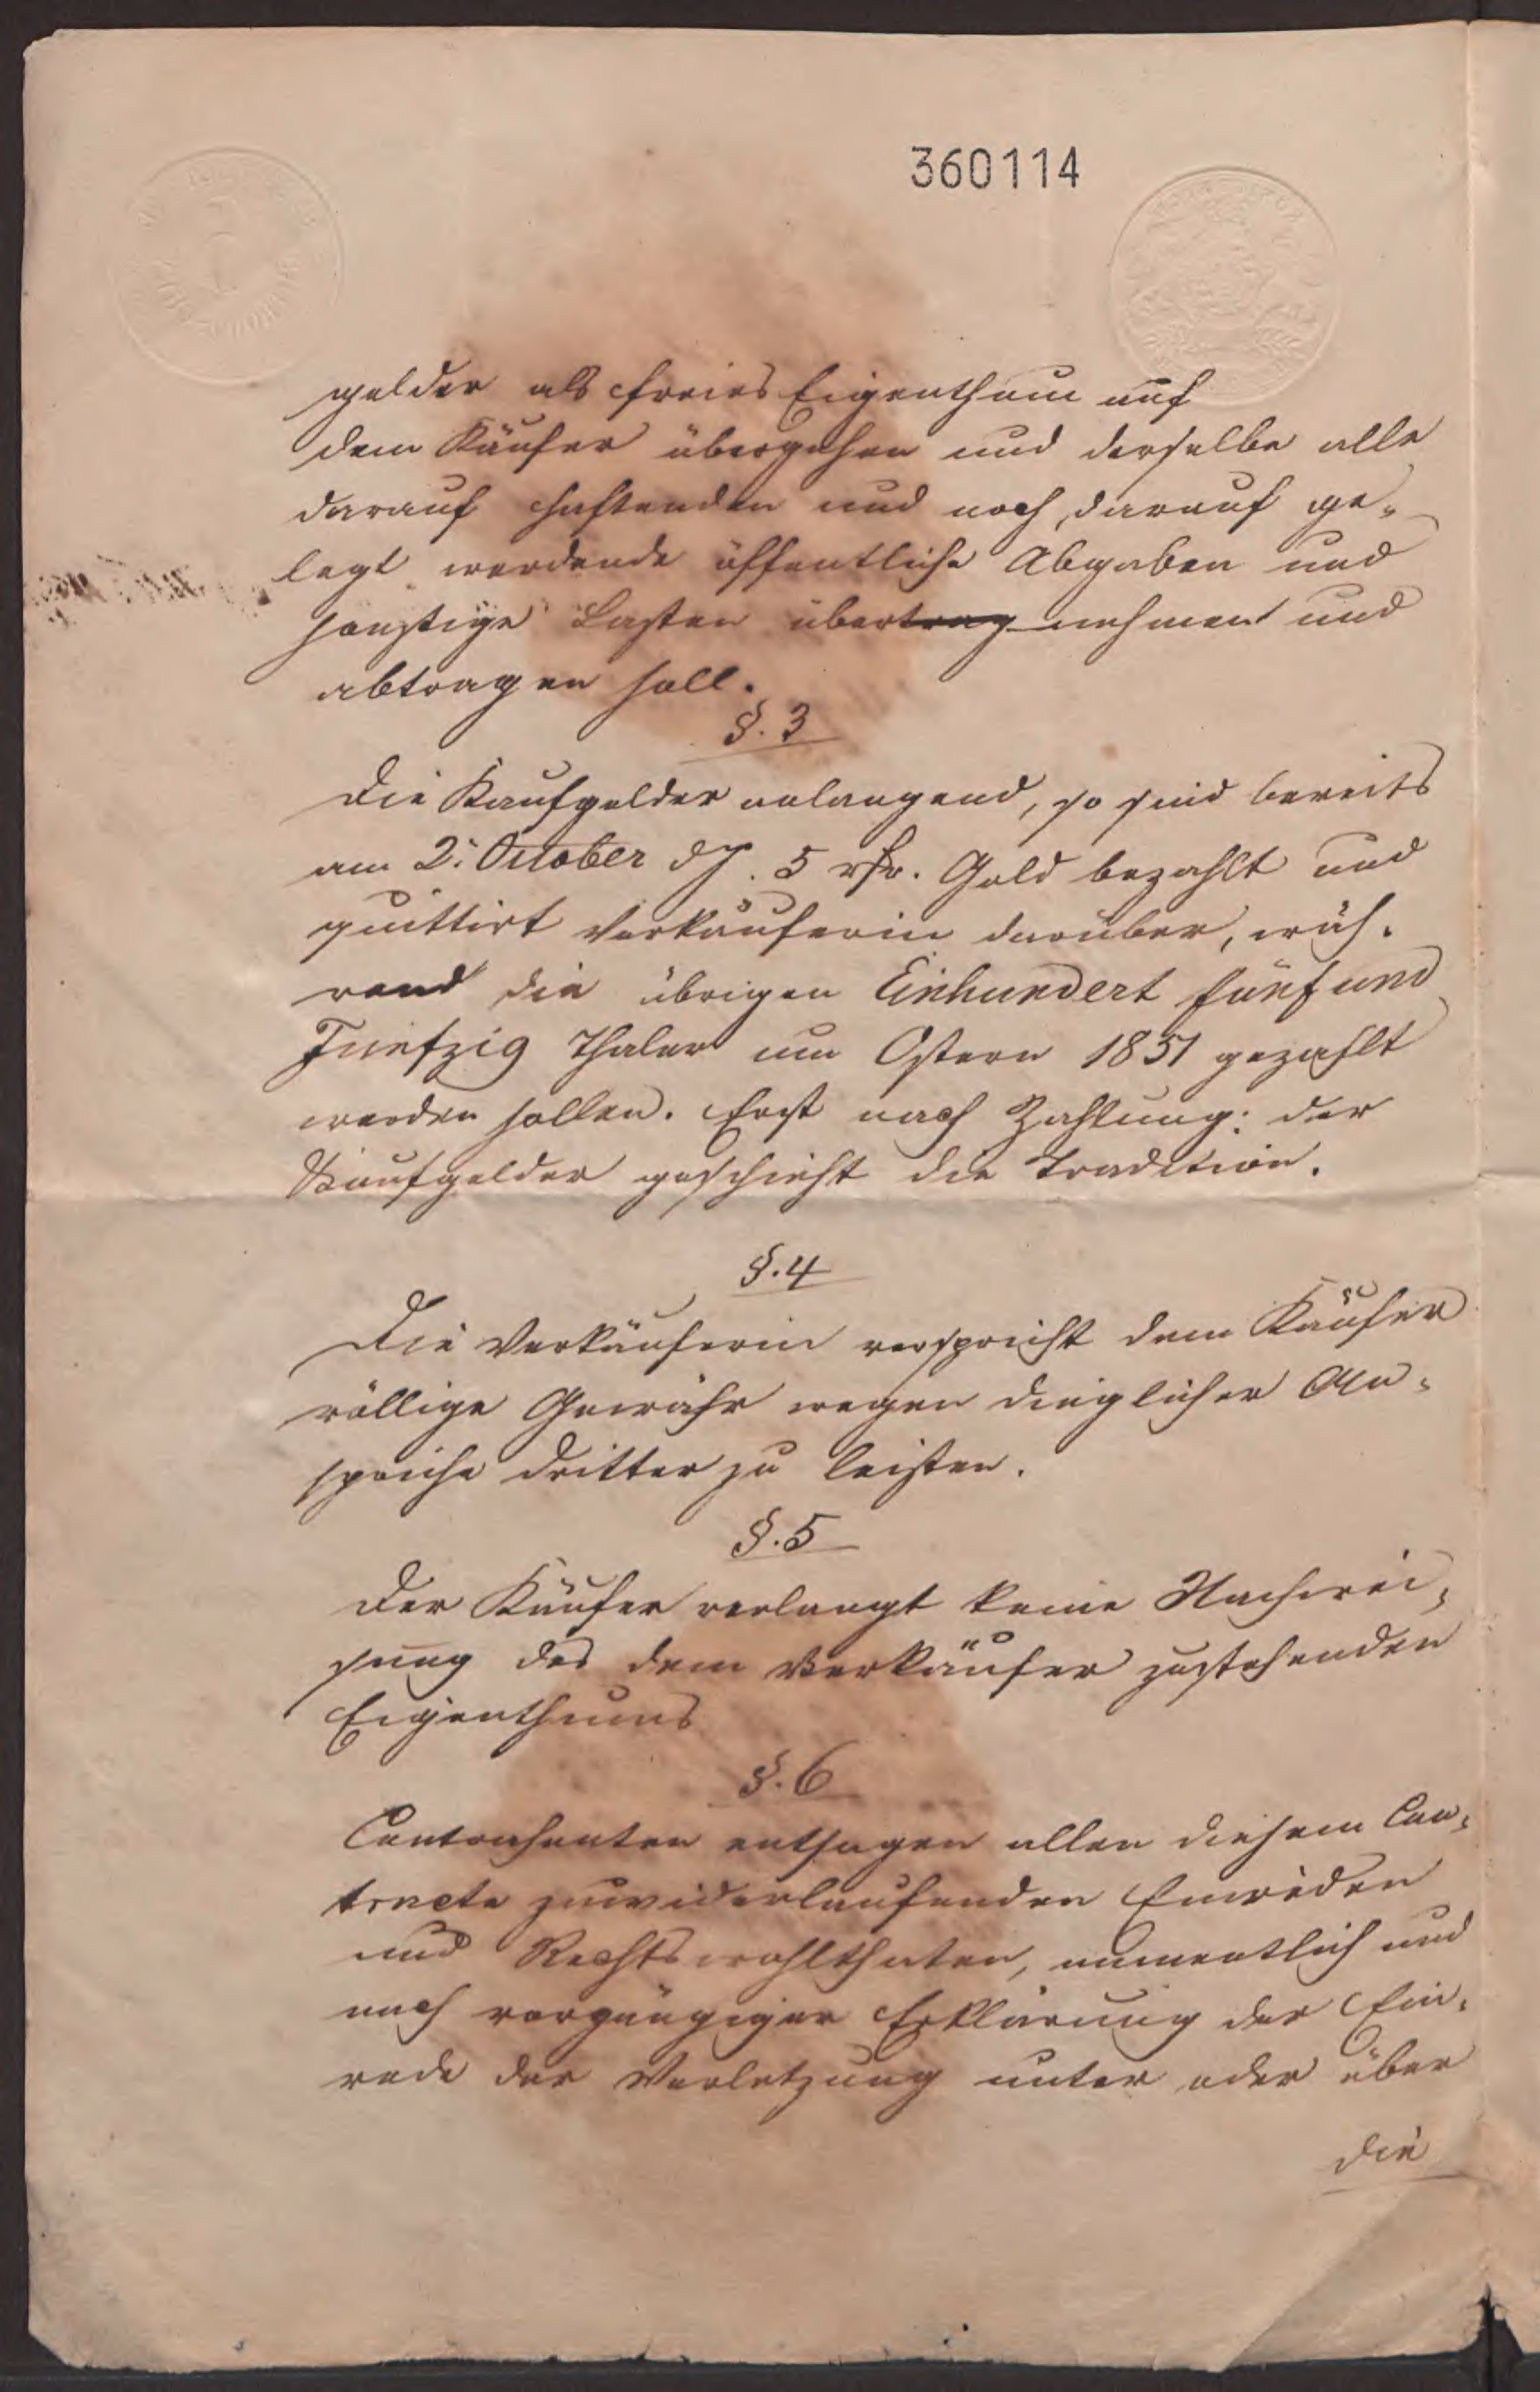 360114
gelder als freies Eigenthum auf
dem Käufer übergehen und derselbe alle
darauf haftenden und noch darauf ge-
legt werdende öffentliche Abgaben und
sonstige Lasten übertrag nehmen und
abtragen soll.
§. 3
Die Kaufgelder anlangend, so sind bereits
am 2. October d. J. 5 rthr. Gold bezahlt und
quittirt Verkäuferin darüber, wäh-
rend die übrigen Einhundert fünf und
Fünfzig Thaler um Ostern 1851 gezahlt
werden sollen. Erst nach Zahlung der
Kaufgelder geschieht die Tradition.
§. 4
Die Verkäuferin verspricht dem Käufer
völlige Gewähr wegen dinglicher An-
sprüche Dritter zu leisten.
§. 5
Der Käufer verlangt keine Nachwei-
sung des dem Verkäufer zustehenden
Eigenthums
§. 6
Contrahenten entsagen allen diesem Con-
tracte zuwiderlaufenden Einreden
und Rechtswohlthaten, namentlich und
nach vorgängiger Erklärung der Ein-
rede der Verletzung unter oder über
die